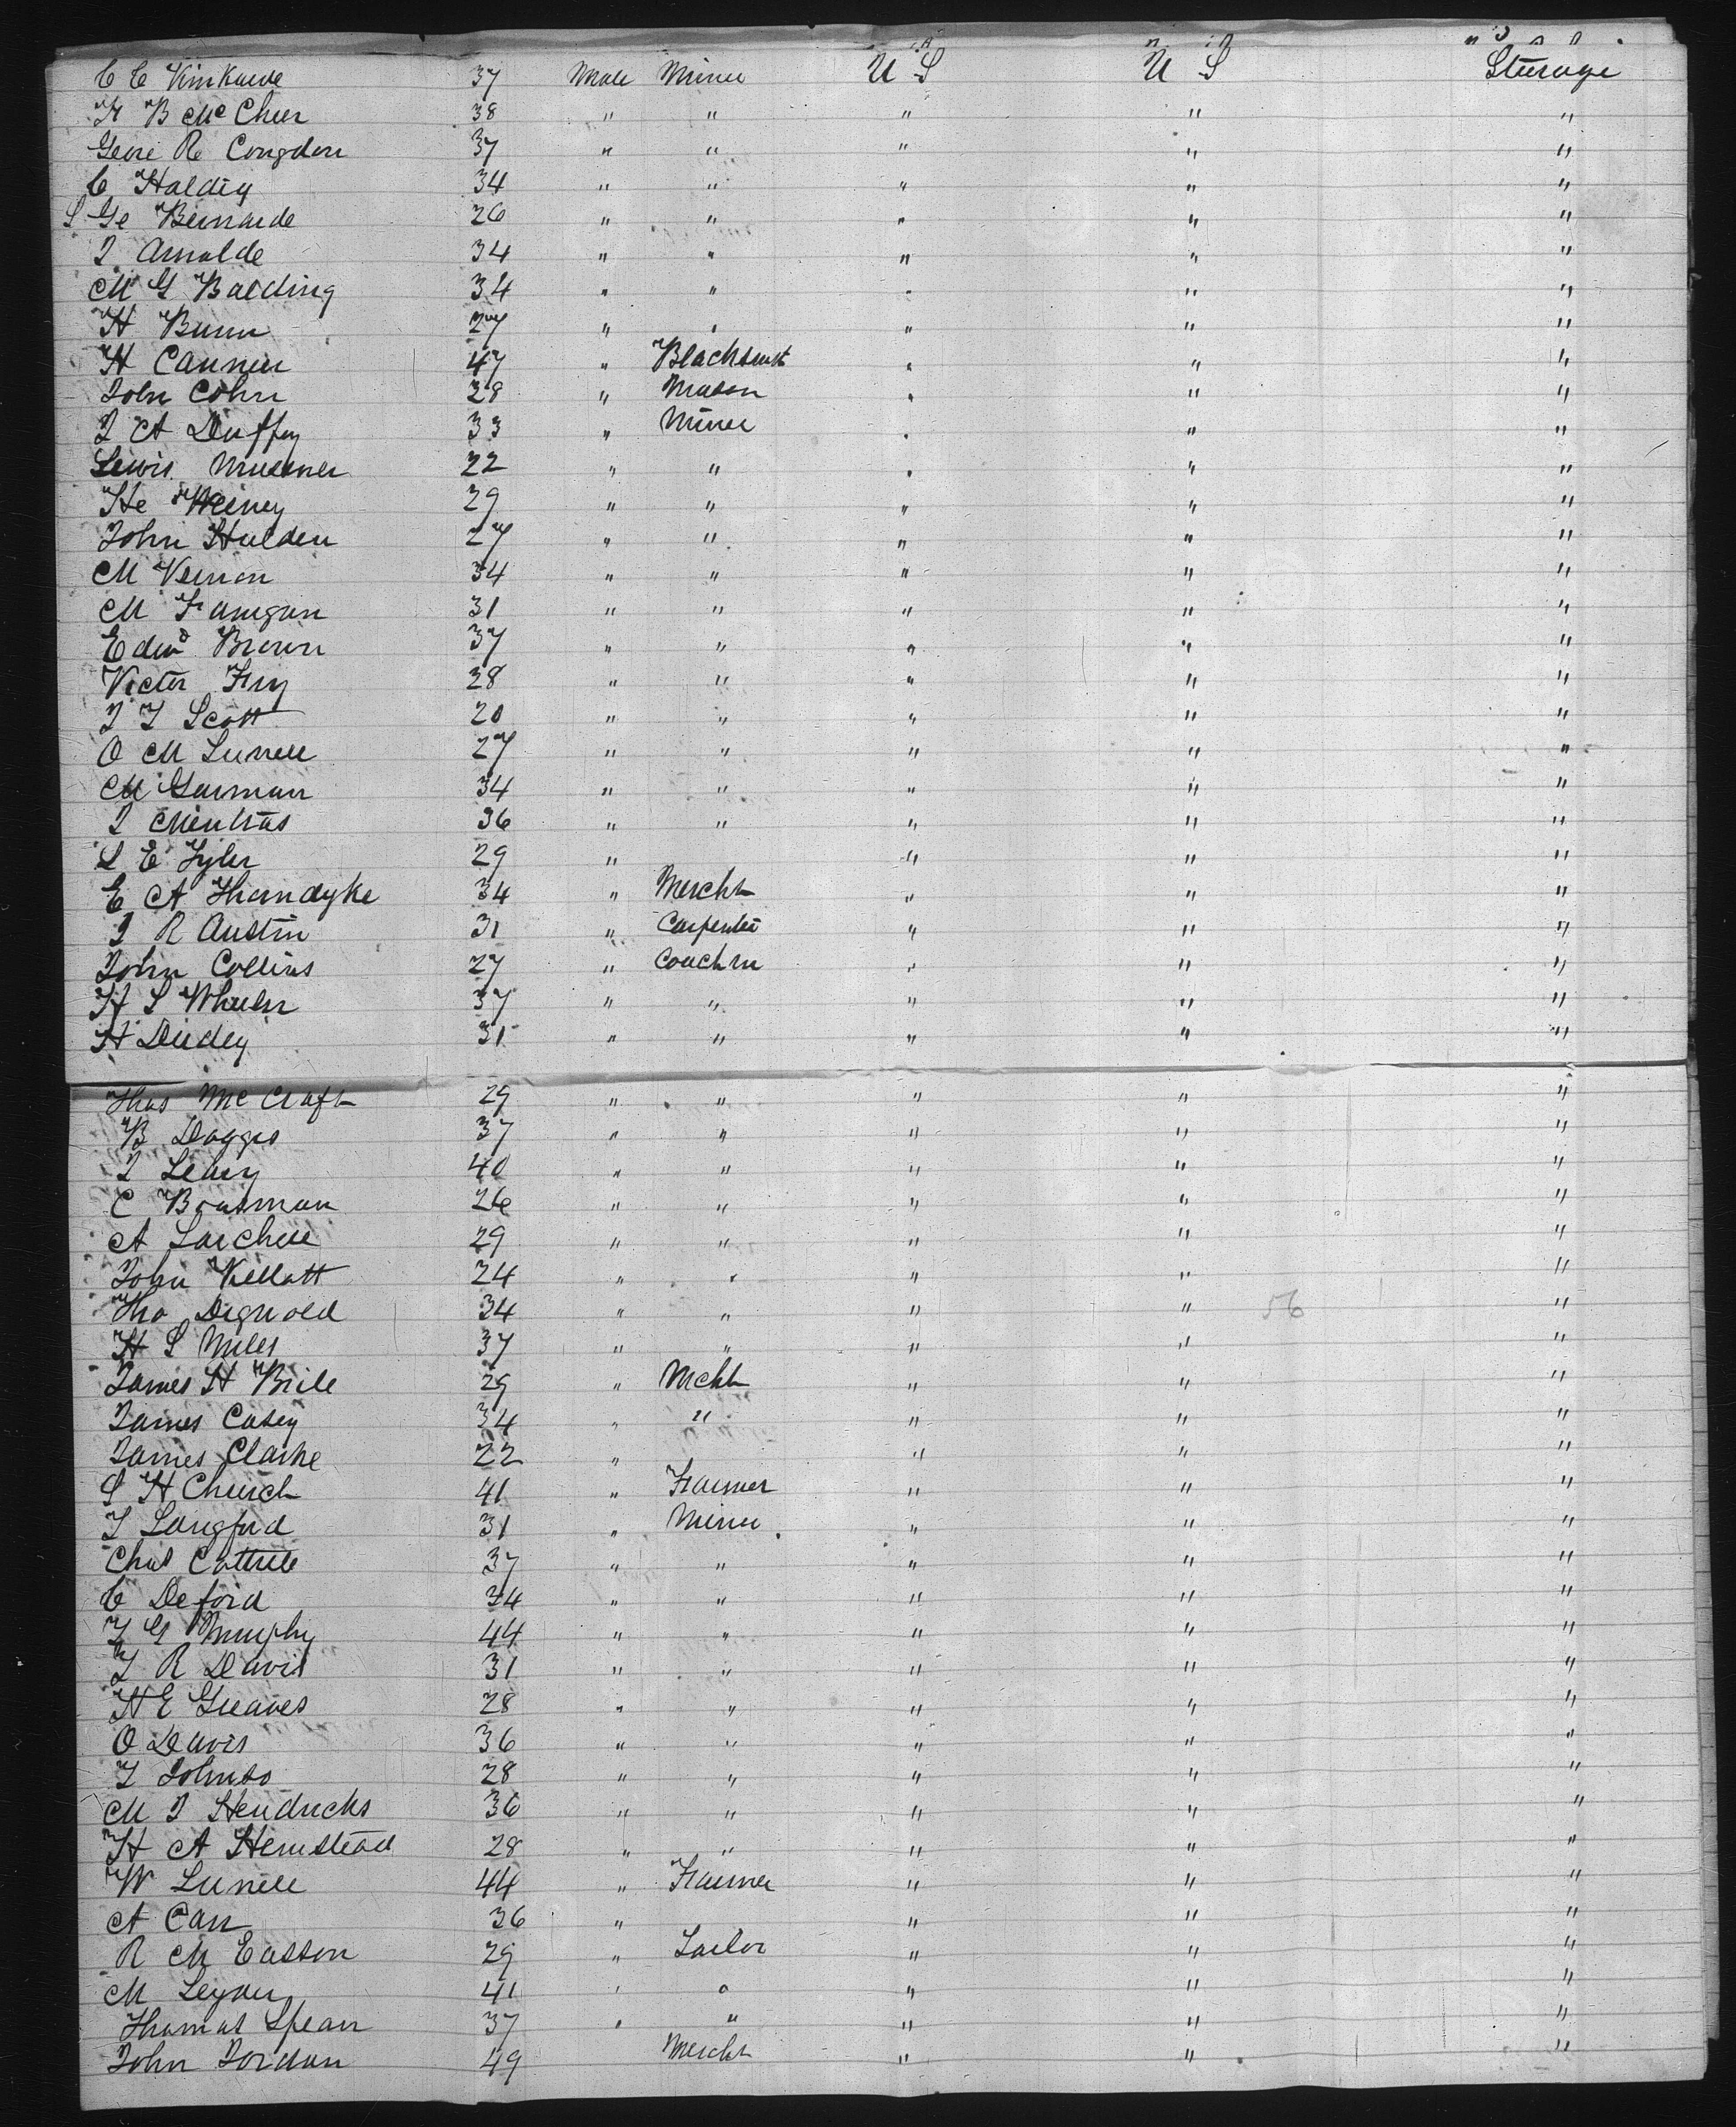 C C Kinkade 37 Male Miner U S U S Steerage
F B McCheer 38 " " " " "
Geore R Congdon 37 " " " " "
C Haldey 34 " " " " "
S Ge Bernarde 26 " " " " "
J Arnolde 34 " " " " "
M G Balding 34 " " " " "
H Bunn 27 " " " " "
H Canner 47 " Blacksmt " " "
John Cohn 28 " Mason " " "
J A Duffey 33 " Miner " " "
Lewis 22 " " " " "
He 29 " " " " "
John Hulden 27 " " " " "
M Vernon 34 " " " " "
M Fanigan 31 " " " " "
Edwd Brown 37 " " " " "
Victor Fry 28 " " " " "
J T Scott 20 " " " " "
O M Lunell 27 " " " " "
M Garman 34 " " " " "
J 36 " " " " "
S E Tyler 29 " " " "
E A Thorndyke 34 " Mercht " " "
J R Austin 31 " Carpenter " " "
John Collins 27 " Coachm " " "
H S Wheeler 37 " " " " "
H Dudey 31 " " " " "
Thos Mc Craft 29 " " " " "
B Dagges 37 " " " " "
J Leary 40 " " " " "
C Boasman 26 " " " " "
A Larchell 29 " " " " "
John Kellott 24 " " " " "
Tho Dignold 34 " " " 56 " "
H S Miles 37 " " " " "
James H Brile 29 " Mcht " " "
James Casey 34 " " " " "
James Clarke 22 " " " "
S H Church 41 " Farmer " " "
T Langford 31 " Miner " " "
Chas Cottrell 37 " " " " "
C Deford 34 " " " " "
T G Murphy 44 " " " " "
T R Davis 31 " " " " "
H E Greaves 28 " " " " "
O Davis 36 " " " " "
T Johnso 28 " " " " "
M J Hendricks 36 " " " " "
H A Hemstead 28 " " " " "
W Lunell 44 " Farmer " " "
A Carr 36 " " " "
R M Easton 29 " Tailor " " "
M Leyden 41 " " " " "
Thomas Spear 37 " " " " "
John Jordan 49 Mercht " " "